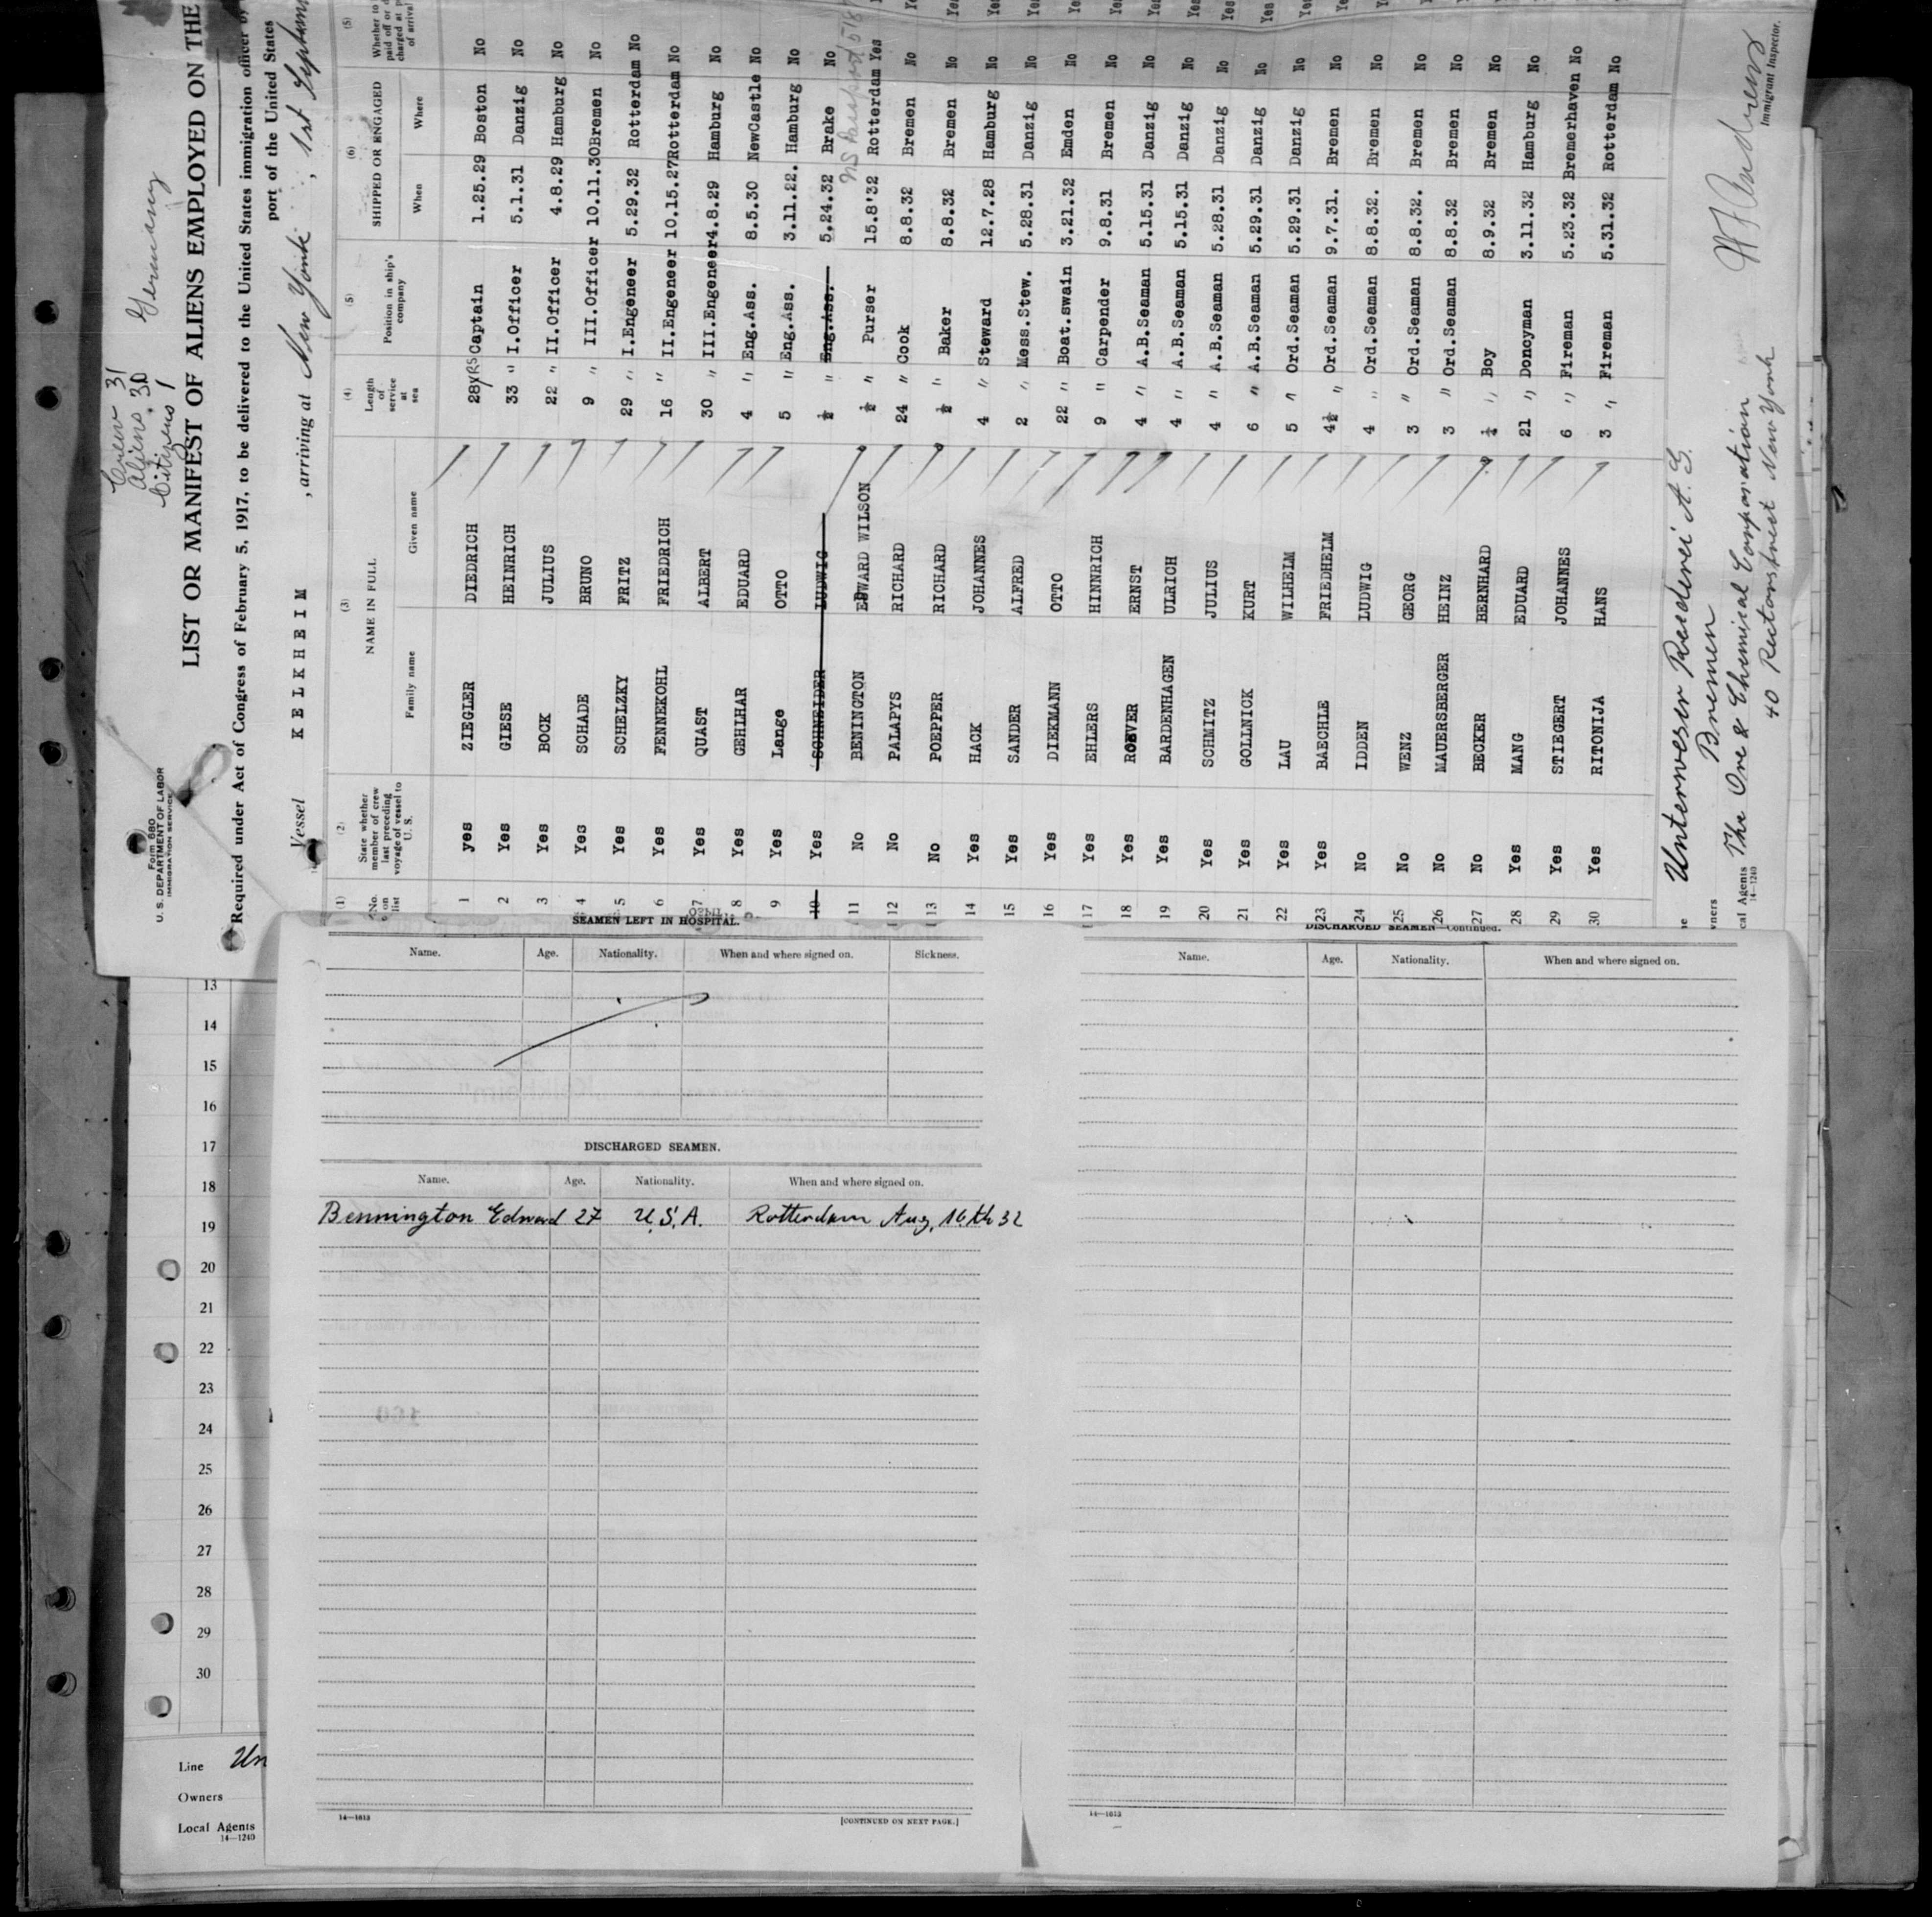 Form 680
U. S. DEPARTMENT OF LABOR
IMMIGRATION SERVICE
Crew 31
Aliens 30
Citizens 1
Germany
LIST OR MANIFEST OF ALIENS EMPLOYED ON THE
Required under Act of Congress of February 5, 1917, to be delivered to the United States immigration officer by
port of the United States
Vessel KELKHEIM , arriving at New York , 1st Septem
(1) (2) (3) (4) (5) (6)
No. on list State whether member of crew last preceding voyage of vessel to U. S. NAME IN FULL Length of service at sea Position in ship's company SHIPPED OR ENGAGED Whether to paid off or charged at of arrival
Family name Given name When Where
1 yes ZIEGLER DIEDRICH 28 yrs Captain 1.25.29 Boston No
2 Yes GIESE HEINRICH 33 " I.Officer 5.1.31 Danzig No
3 Yes BOCK JULIUS 22 " II.Officer 4.8.29 Hamburg No
4 Yes SCHADE BRUNO 9 " III.Officer 10.11.30 Bremen No
5 Yes SCHELZKY FRITZ 29 " I.Engeneer 5.29.32 Rotterdam No
6 Yes FENNEKOHL FRIEDRICH 16 " II.Engeneer 10.15.27 Rotterdam No
7 Yes QUAST ALBERT 30 " III.Engeneer 4.8.29 Hamburg No
8 Yes GEHLHAR EDUARD 4 " Eng.Ass. 8.5.30 NewCastle No
9 Yes Lange OTTO 5 " Eng.Ass. 3.11.22. Hamburg No
10 Yes SCHNEIDER LUDWIG ½ " Eng.Ass. 5.24.32 Brake No
11 No BENINGTON EDWARD WILSON ½ " Purser 15.8'32 Rotterdam Yes
12 No PALAPYS RICHARD 24 " Cook 8.8.32 Bremen No
13 No POEPPER RICHARD ½ " Baker 8.8.32 Bremen No
14 Yes HACK JOHANNES 4 " Steward 12.7.28 Hamburg No
15 Yes SANDER ALFRED 2 " Mess.Stew. 5.28.31 Danzig No
16 Yes DIEKMANN OTTO 22 " Boat.swain 3.21.32 Emden No
17 Yes EHLERS HINNRICH 9 " Carpender 9.8.31 Bremen No
18 Yes ROEVER ERNST 4 " A.B.Seaman 5.15.31 Danzig No
19 Yes BARDENHAGEN ULRICH 4 " A.B.Seaman 5.15.31 Danzig No
20 Yes SCHMITZ JULIUS 4 " A.B.Seaman 5.28.31 Danzig No
21 Yes GOLLNICK KURT 6 " A.B.Seaman 5.29.31 Danzig No
22 Yes LAU WILHELM 5 " Ord.Seaman 5.29.31 Danzig No
23 Yes BAECHLE FRIEDHELM 4½ " Ord.Seaman 9.7.31. Bremen No
24 No IDDEN LUDWIG 4 " Ord.Seaman 8.8.32. Bremen No
25 No WENZ GEORG 3 " Ord.Seaman 8.8.32. Bremen No
26 No MAUERSBERGER HEINZ 3 " Ord.Seaman 8.8.32 Bremen No
27 No BECKER BERNHARD " Boy 8.9.32 Bremen No
28 Yes MANG EDUARD 21 " Doncyman 3.11.32 Hamburg No
29 Yes STIEGERT JOHANNES 6 " Fireman 5.23.32 Bremerhaven No
30 Yes RITONIJA HANS 3 " Fireman 5.31.32 Rotterdam No
Unterweser Reederei A. G.
Bremen
cal Agents The Ore & Chemical Corporation
40 Rectorstreet New York
14—1240
Immigrant Inspector.
SEAMEN LEFT IN HOSPITAL.
Name. Age. Nationality. When and where signed on. Sickness.
DISCHARGED SEAMEN.
Name. Age. Nationality. When and where signed on.
Bennington Edward 27 U.S.A. Rotterdam Aug, 16th 32
14—1613
[CONTINUED ON NEXT PAGE.]
DISCHARGED SEAMEN—Continued.
Name. Age. Nationality. When and where signed on.
14—1613
13
14
15
16
17
18
19
20
21
22
23
24
25
26
27
28
29
30
Line Un
Owners
Local Agents
14—1240